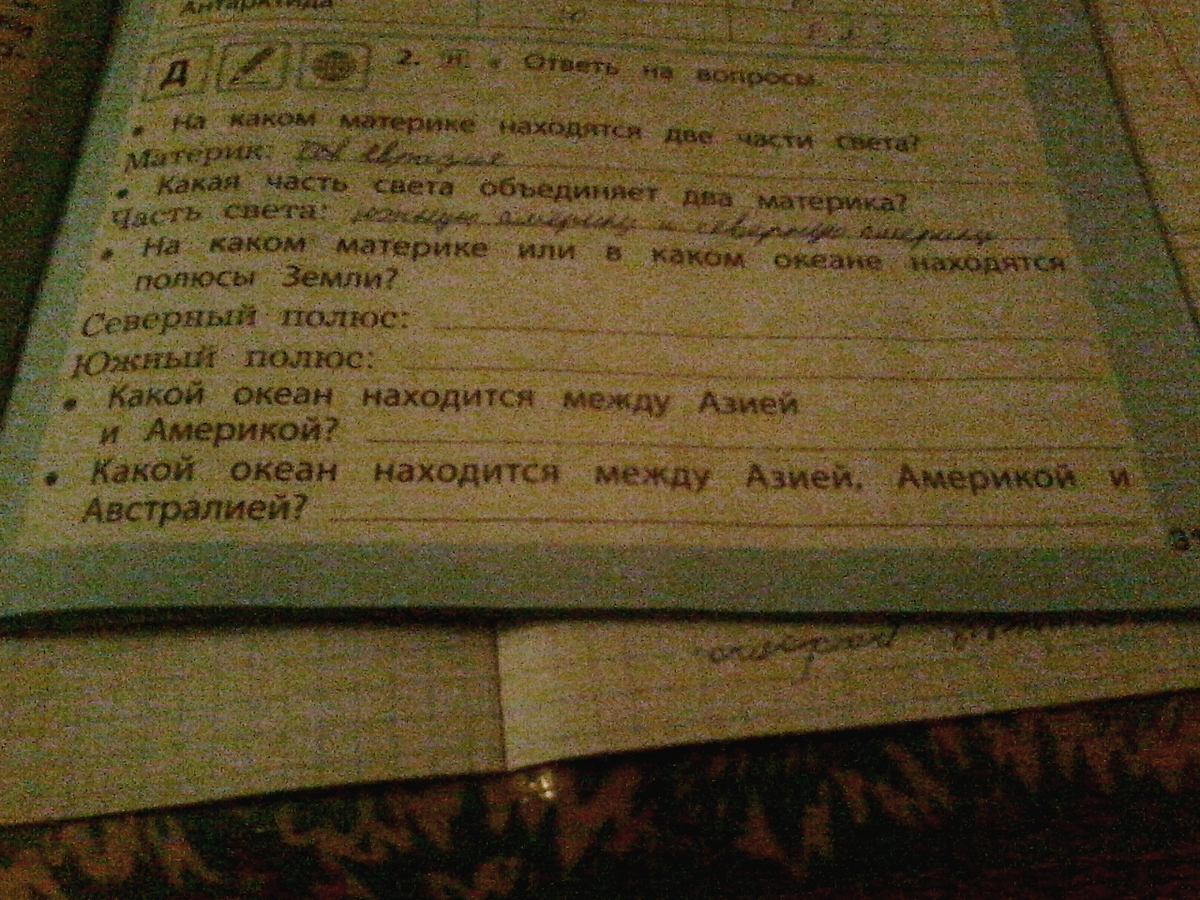 Антарктида
Д 2. Ответь на вопросы.
• На каком материке находятся две части света?
Материк: евразие
• Какая часть света объединяет два материка?
Часть света: южную америку и северную америку
• На каком материке или в каком океане находятся
полюсы Земли?
Северный полюс:
Южный полюс:
• Какой океан находится между Азией
и Америкой?
• Какой океан находится между Азией, Америкой и
Австралией?